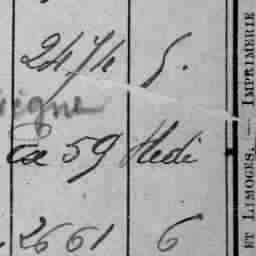 2474 5.
vigne
Ca 59 Hedi
2661 6
ET LIMOGES. — IMPRIMERIE